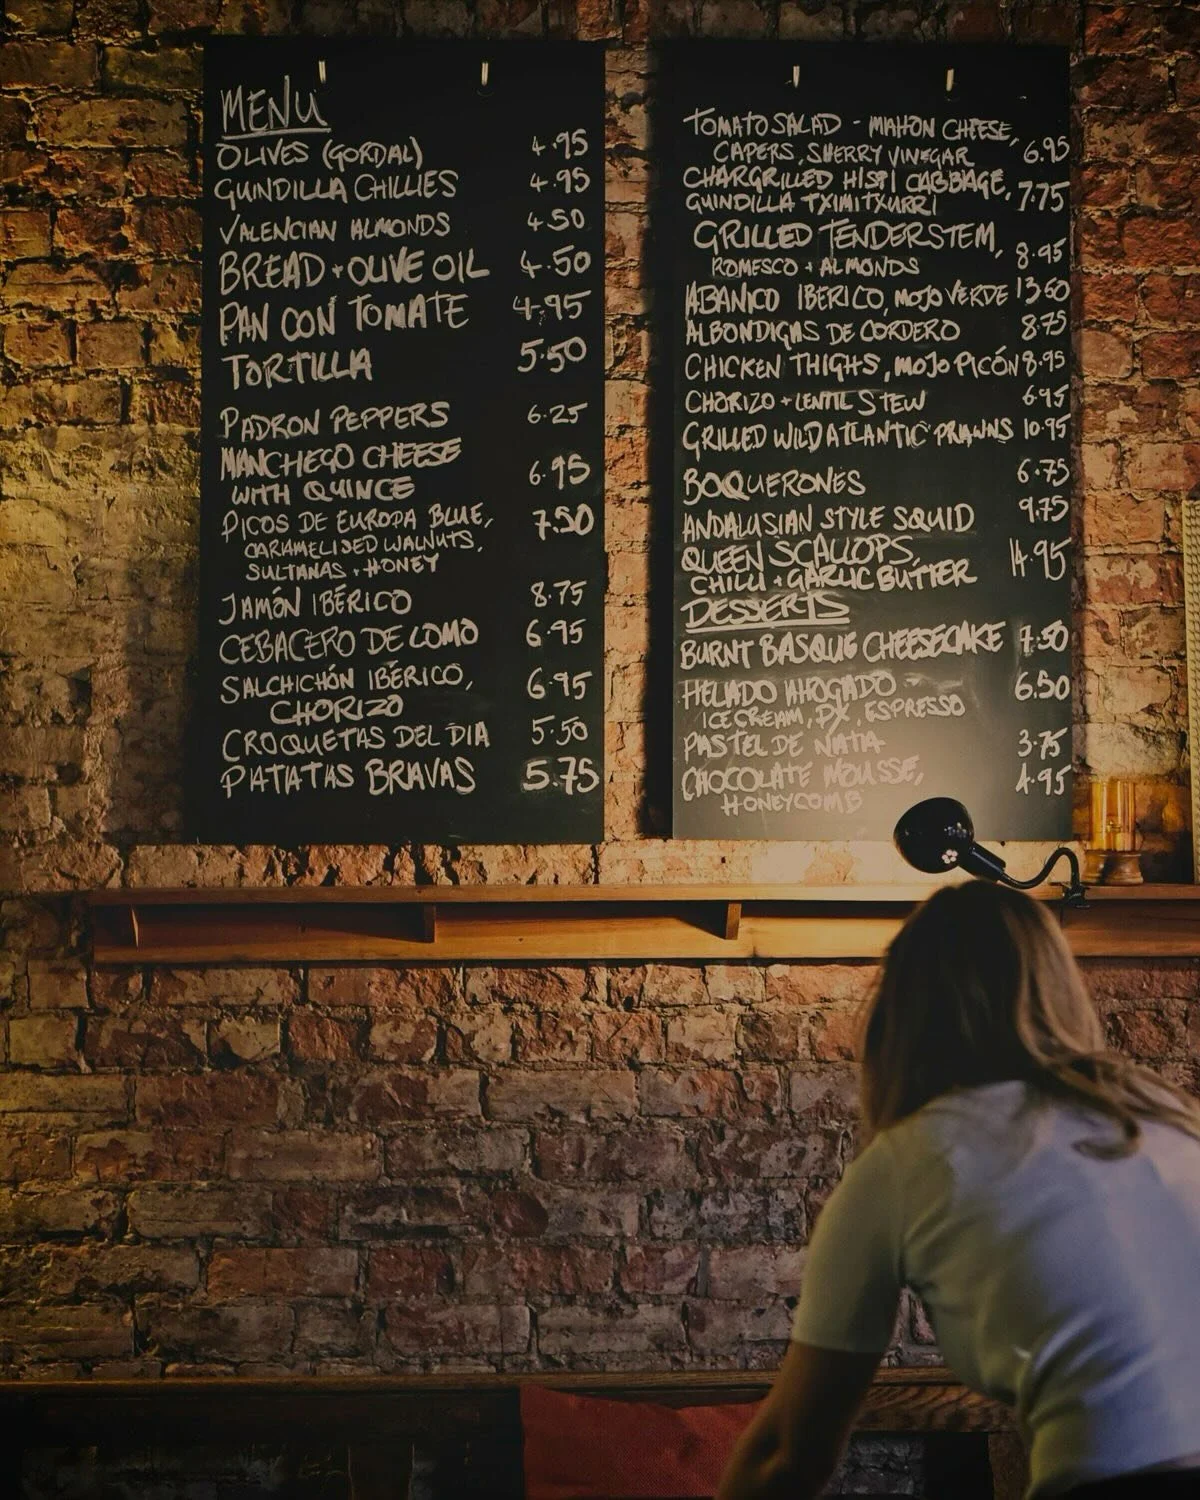 MENU
OLIVES (GORDAL) 4.95
GUINDILLA CHILLIES 4.95
VALENCIAN ALMONDS 4.50
BREAD + OLIVE OIL 4.50
PAN CON TOMATE 4.95
TORTILLA 5.50
PADRON PEPPERS 6.25
MANCHEGO CHEESE
WITH QUINCE 6.95
PICOS DE EUROPA BLUE, 7.50
CARAMELISED WALNUTS,
SULTANAS + HONEY
JAMÓN IBÉRICO 8.75
CEBACERO DE LOMO 6.95
SALCHICHÓN IBÉRICO, 6.95
CHORIZO
CROQUETAS DEL DIA 5.50
PATATAS BRAVAS 5.75
TOMATO SALAD - MAHON CHEESE,
CAPERS, SHERRY VINEGAR 6.95
CHARGRILLED HISPI CABBAGE,
GUINDILLA TXIMITXURRI 7.75
GRILLED TENDERSTEM,
ROMESCO + ALMONDS 8.95
ABANICO IBERICO, MOJO VERDE 13.60
ALBONDIGAS DE CORDERO 8.75
CHICKEN THIGHS, MOJO PICÓN 8.95
CHORIZO + LENTIL STEW 6.95
GRILLED WILD ATLANTIC PRAWNS 10.95
BOQUERONES 6.75
ANDALUSIAN STYLE SQUID 9.75
QUEEN SCALLOPS,
CHILLI + GARLIC BUTTER 14.95
DESSERTS
BURNT BASQUE CHEESECAKE 7.50
HELADO AHOGADO - 6.50
ICE CREAM, PX, ESPRESSO
PASTEL DE NATA 3.75
CHOCOLATE MOUSSE, 4.95
HONEYCOMB